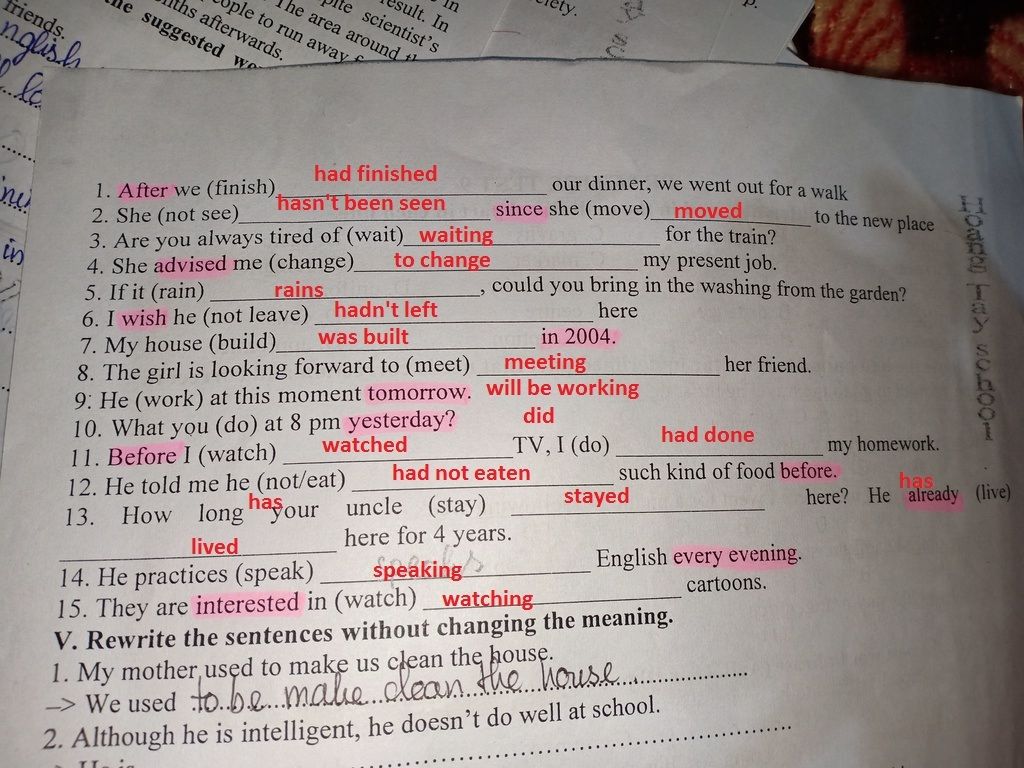 friends.
nglish
ople to run away
nths afterwards.
The area around
pite scientist's
result. In
ciety.
the suggested
had finished
1. After we (finish)________ our dinner, we went out for a walk
hasn't been seen
2. She (not see)________ since she (move) moved to the new place
3. Are you always tired of (wait) waiting for the train?
4. She advised me (change) to change my present job.
5. If it (rain) rains, could you bring in the washing from the garden?
6. I wish he (not leave) hadn't left here
7. My house (build) was built in 2004.
8. The girl is looking forward to (meet) meeting her friend.
9. He (work) at this moment tomorrow. will be working
10. What you (do) at 8 pm yesterday? did
11. Before I (watch) watched TV, I (do) had done my homework.
12. He told me he (not/eat) had not eaten such kind of food before.
13. How long has your uncle (stay) stayed here? He has already (live)
lived here for 4 years.
14. He practices (speak) speaking English every evening.
15. They are interested in (watch) watching cartoons.
V. Rewrite the sentences without changing the meaning.
1. My mother used to make us clean the house.
–> We used to be make clean the house
2. Although he is intelligent, he doesn't do well at school.